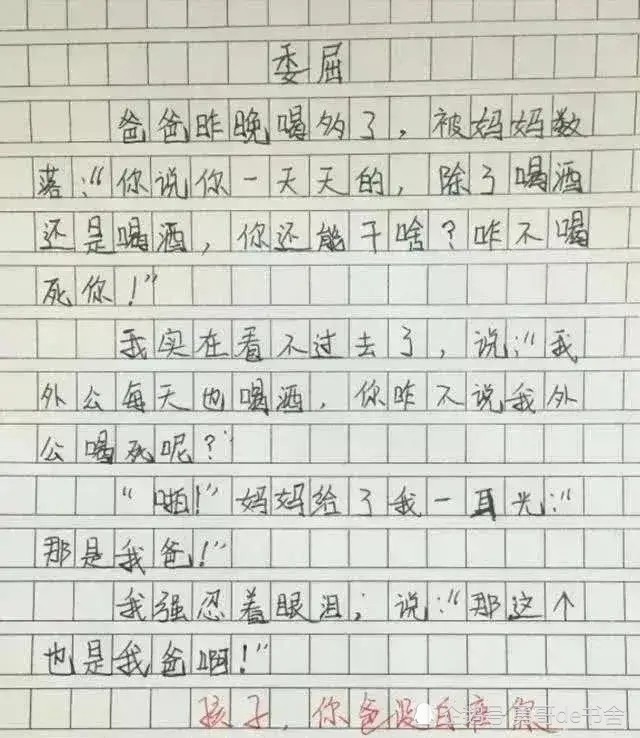 委屈
爸爸昨晚喝多了，被妈妈数
落："你说你一天天的，除了喝酒
还是喝酒，你还能干啥？咋不喝
死你！"
我实在看不过去了，说："我
外公每天也喝酒，你咋不说我外
公喝死呢？"
"啪！"妈妈给了我一耳光："
那是我爸！"
我强忍着眼泪；说："那这个
也是我爸啊！"
孩子，你爸没白疼你